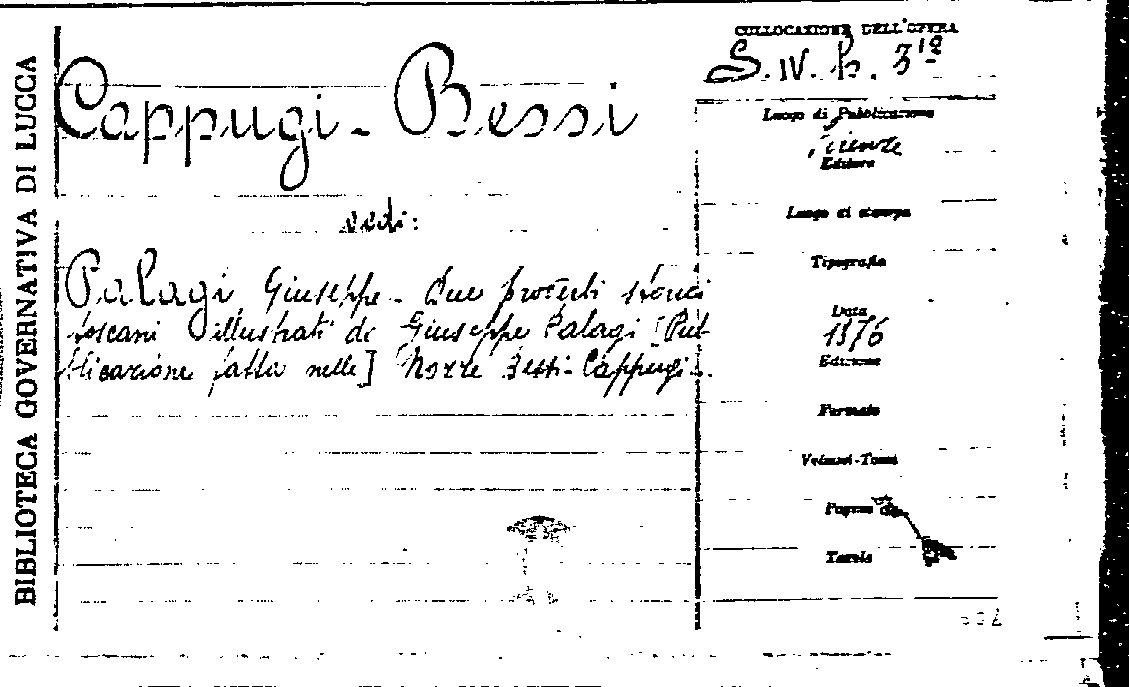 BIBLIOTECA GOVERNATIVA DI LUCCA
Cappugi - Bessi
vedi:
Palagi Giuseppe - Due proverbi storici
toscani illustrati da Giuseppe Palagi [Pub-
blicazione fatta nelle] Nozze Bessi-Cappugi -.
COLLOCAZIONE DELL'OPERA
S. IV. h. 31a
Luogo di Pubblicazione
Firenze
Editore
Luogo di stampa
Tipografia
Data
1876
Edizione
Formato
Volumi-Tomi
Pagine
Tavole